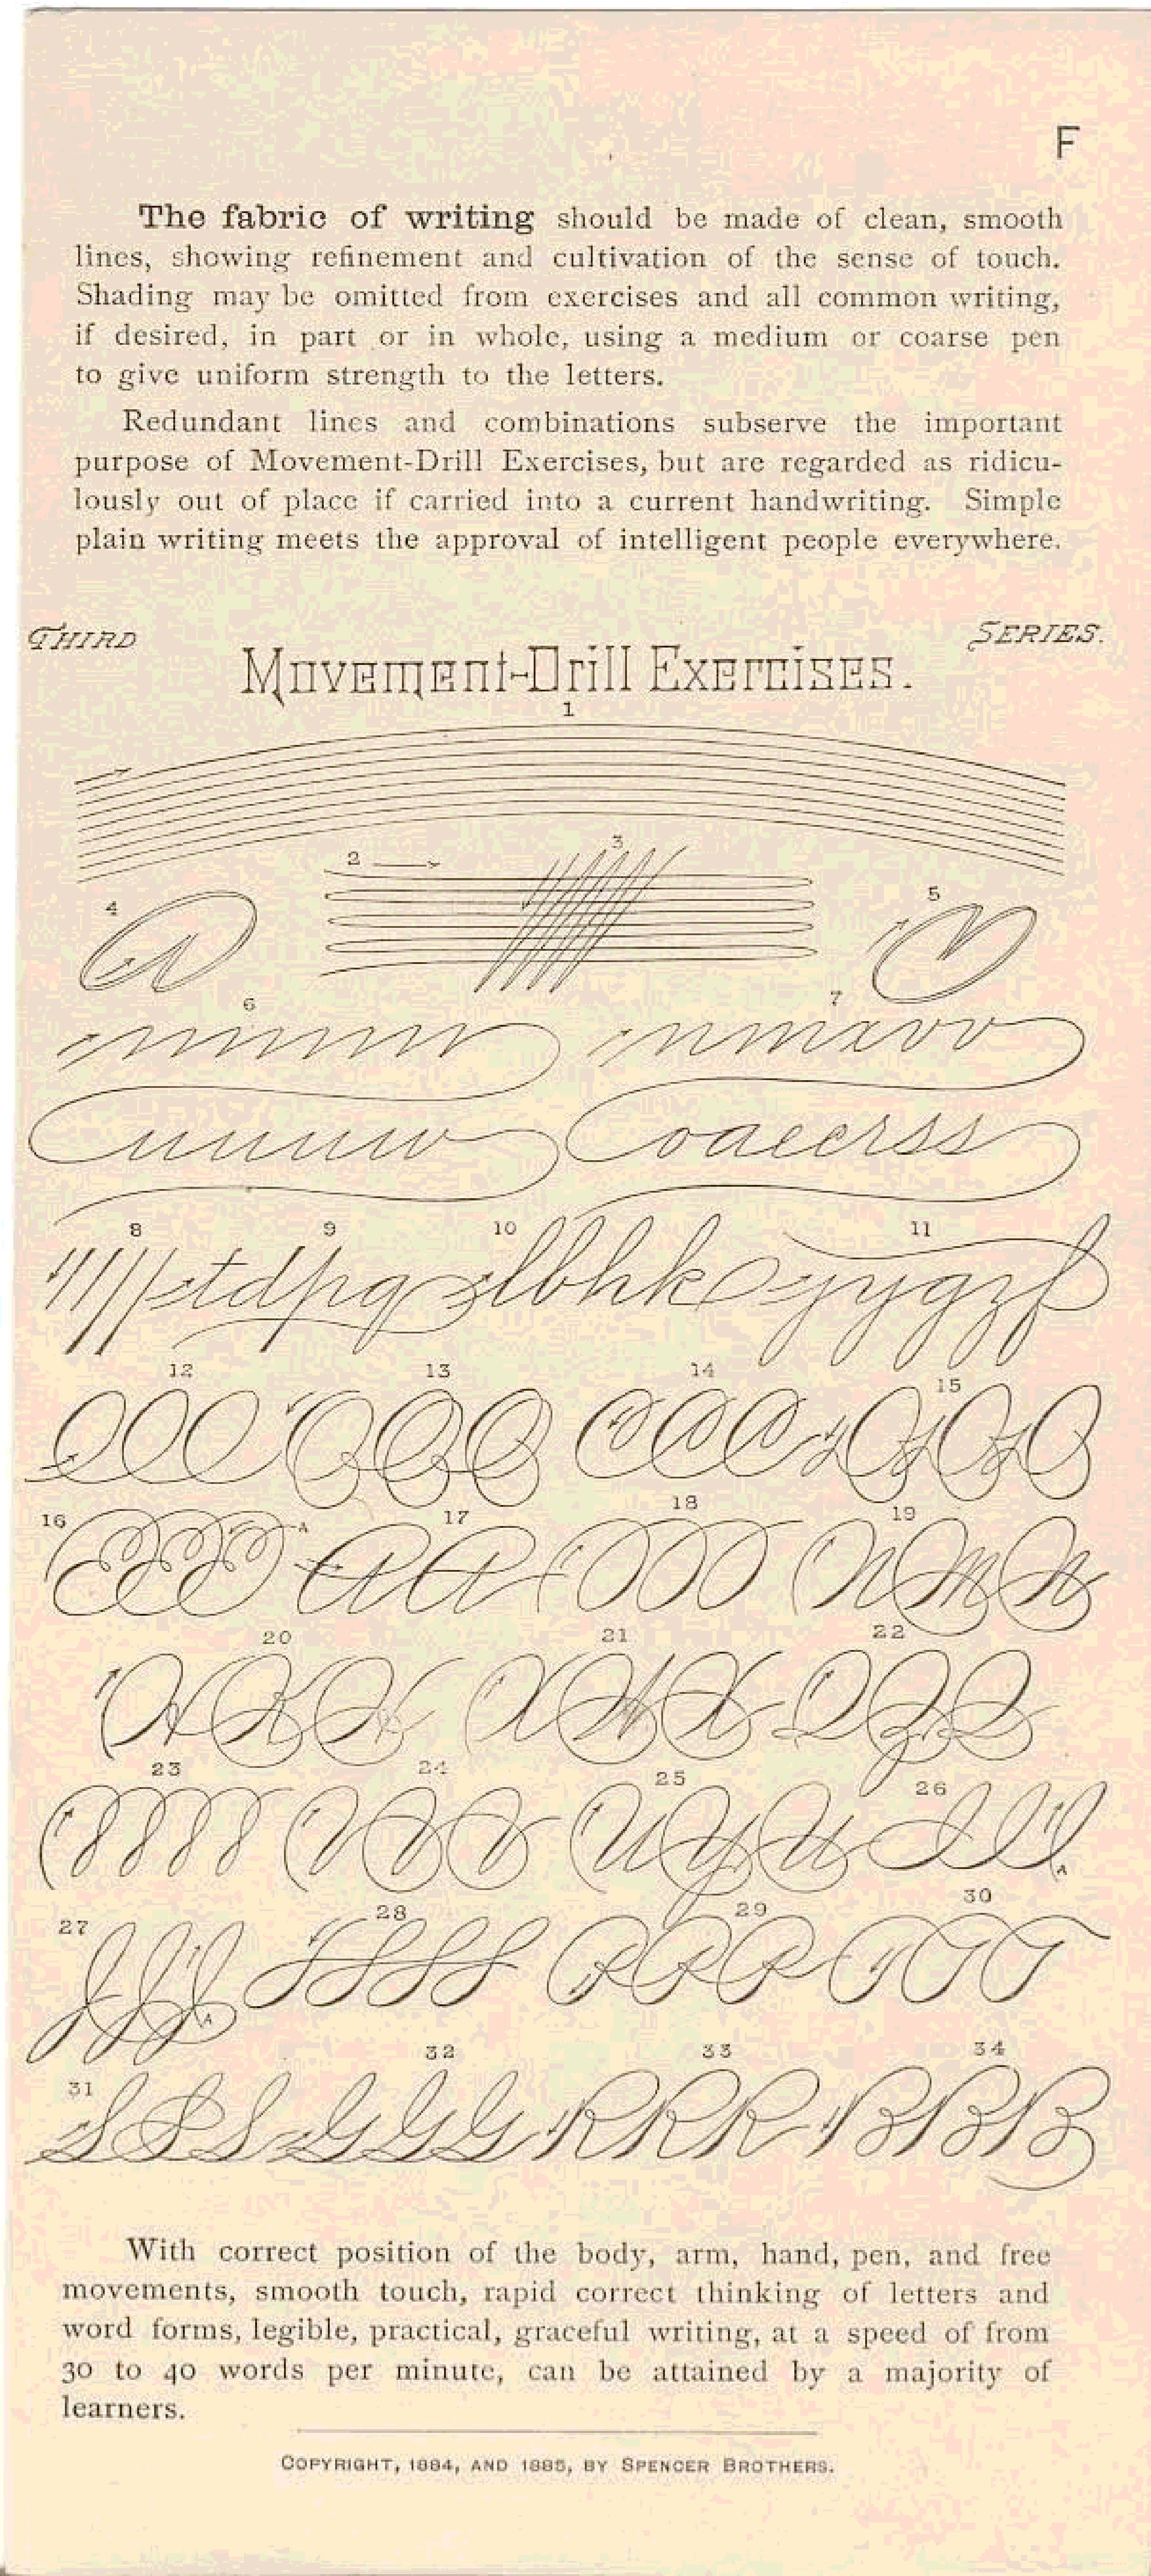 F
The fabric of writing should be made of clean, smooth
lines, showing refinement and cultivation of the sense of touch.
Shading may be omitted from exercises and all common writing,
if desired, in part or in whole, using a medium or coarse pen
to give uniform strength to the letters.
Redundant lines and combinations subserve the important
purpose of Movement-Drill Exercises, but are regarded as ridicu-
lously out of place if carried into a current handwriting. Simple
plain writing meets the approval of intelligent people everywhere.
THIRD SERIES.
Movement-Drill Exercises.
1
2 3
4 5
6 7
nmxvv
uuuuw oaeerss
8 9 10 11
tdpq lbhk jyygzf
12 13 14 15
16 17 18 19
20 21 22
23 24 25 26
27 28 29 30
31 32 33 34
SSS GGG RRR BBB
With correct position of the body, arm, hand, pen, and free
movements, smooth touch, rapid correct thinking of letters and
word forms, legible, practical, graceful writing, at a speed of from
30 to 40 words per minute, can be attained by a majority of
learners.
COPYRIGHT, 1884, AND 1885, BY SPENCER BROTHERS.